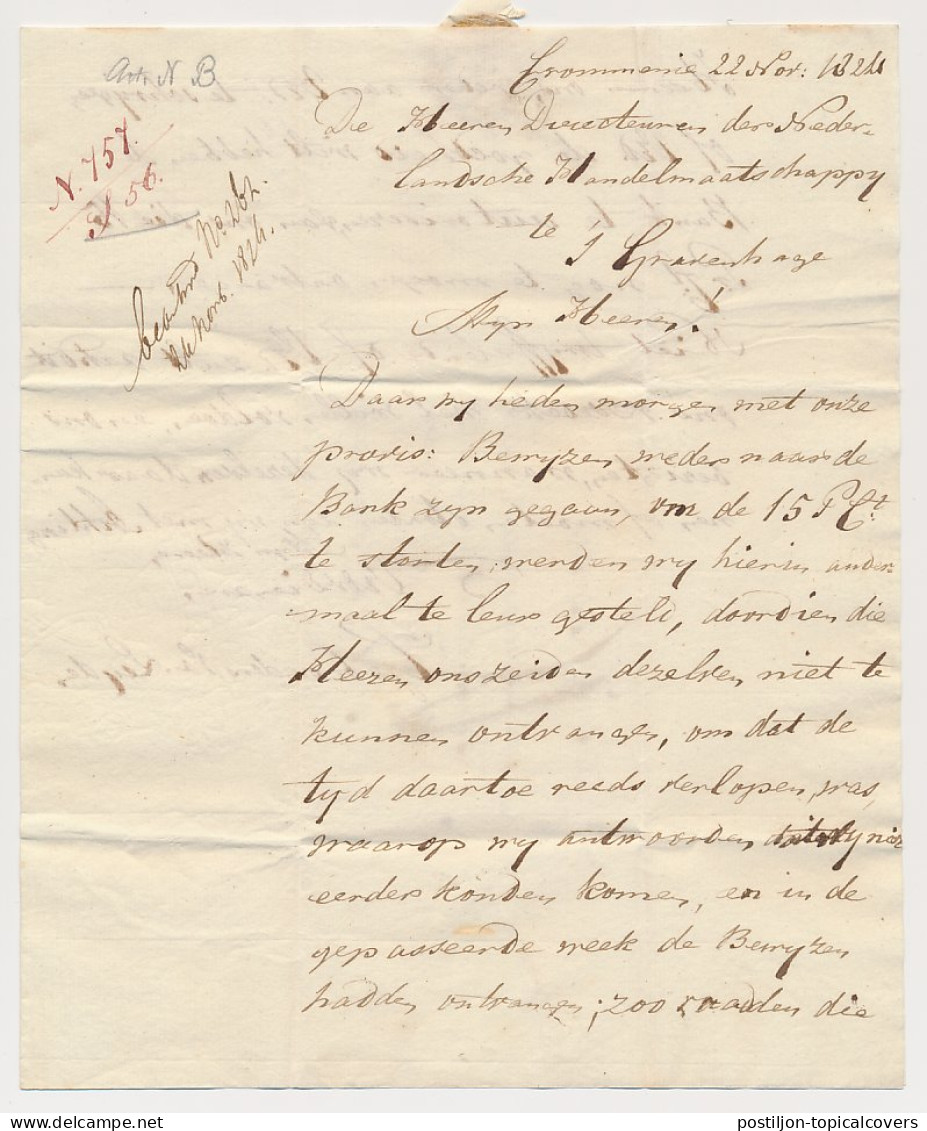 Art. N B.
N. 757.
S 56.
beantw No. 262.
24 Novb. 1824.
Crommenie 22 Nov: 1824
De Heeren Directeuren der Neder-
landsche Handelmaatschappy
te 's Gravenhage
Myn Heeren!
Daar wy heden morgen met onze
provis: Bewyzen weder naar de
Bank zyn gegaan, om de 15 PCt.
te storten, werden wy hierin ander-
maal te leur gesteld, doordien die
Heeren ons zeiden dezelven niet te
kunnen ontvangen, om dat de
tyd daartoe reeds verlopen was,
waarop wy antwoorden dat wy niet
eerder konden komen, en in de
gepasseerde week de Bewyzen
hadden ontvangen; zoo raaden die
postiljon-topicalcovers